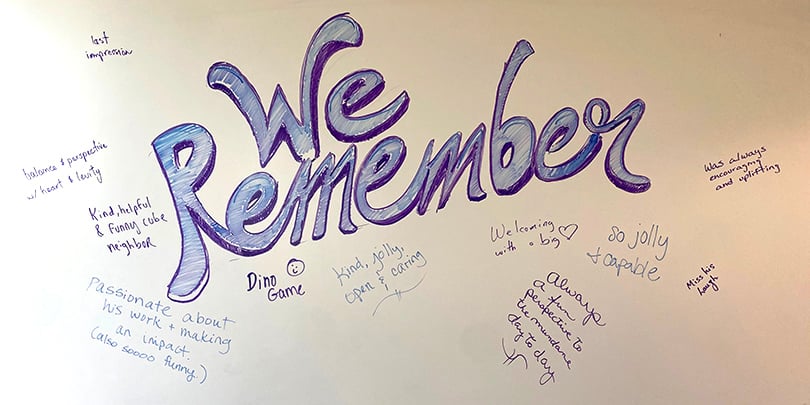 We
Remember
last
impression
balance + perspective
w/ heart & levity
Kind, helpful
& funny cube
neighbor
Passionate about
his work + making
an impact.
(also soooo funny.)
Dino
Game
Kind, jolly,
open & caring
Welcoming
with a big
so jolly
+ capable
Was always
encouraging
and uplifting
Miss his
laugh
always
a fun
perspective to
the mundane
day to day